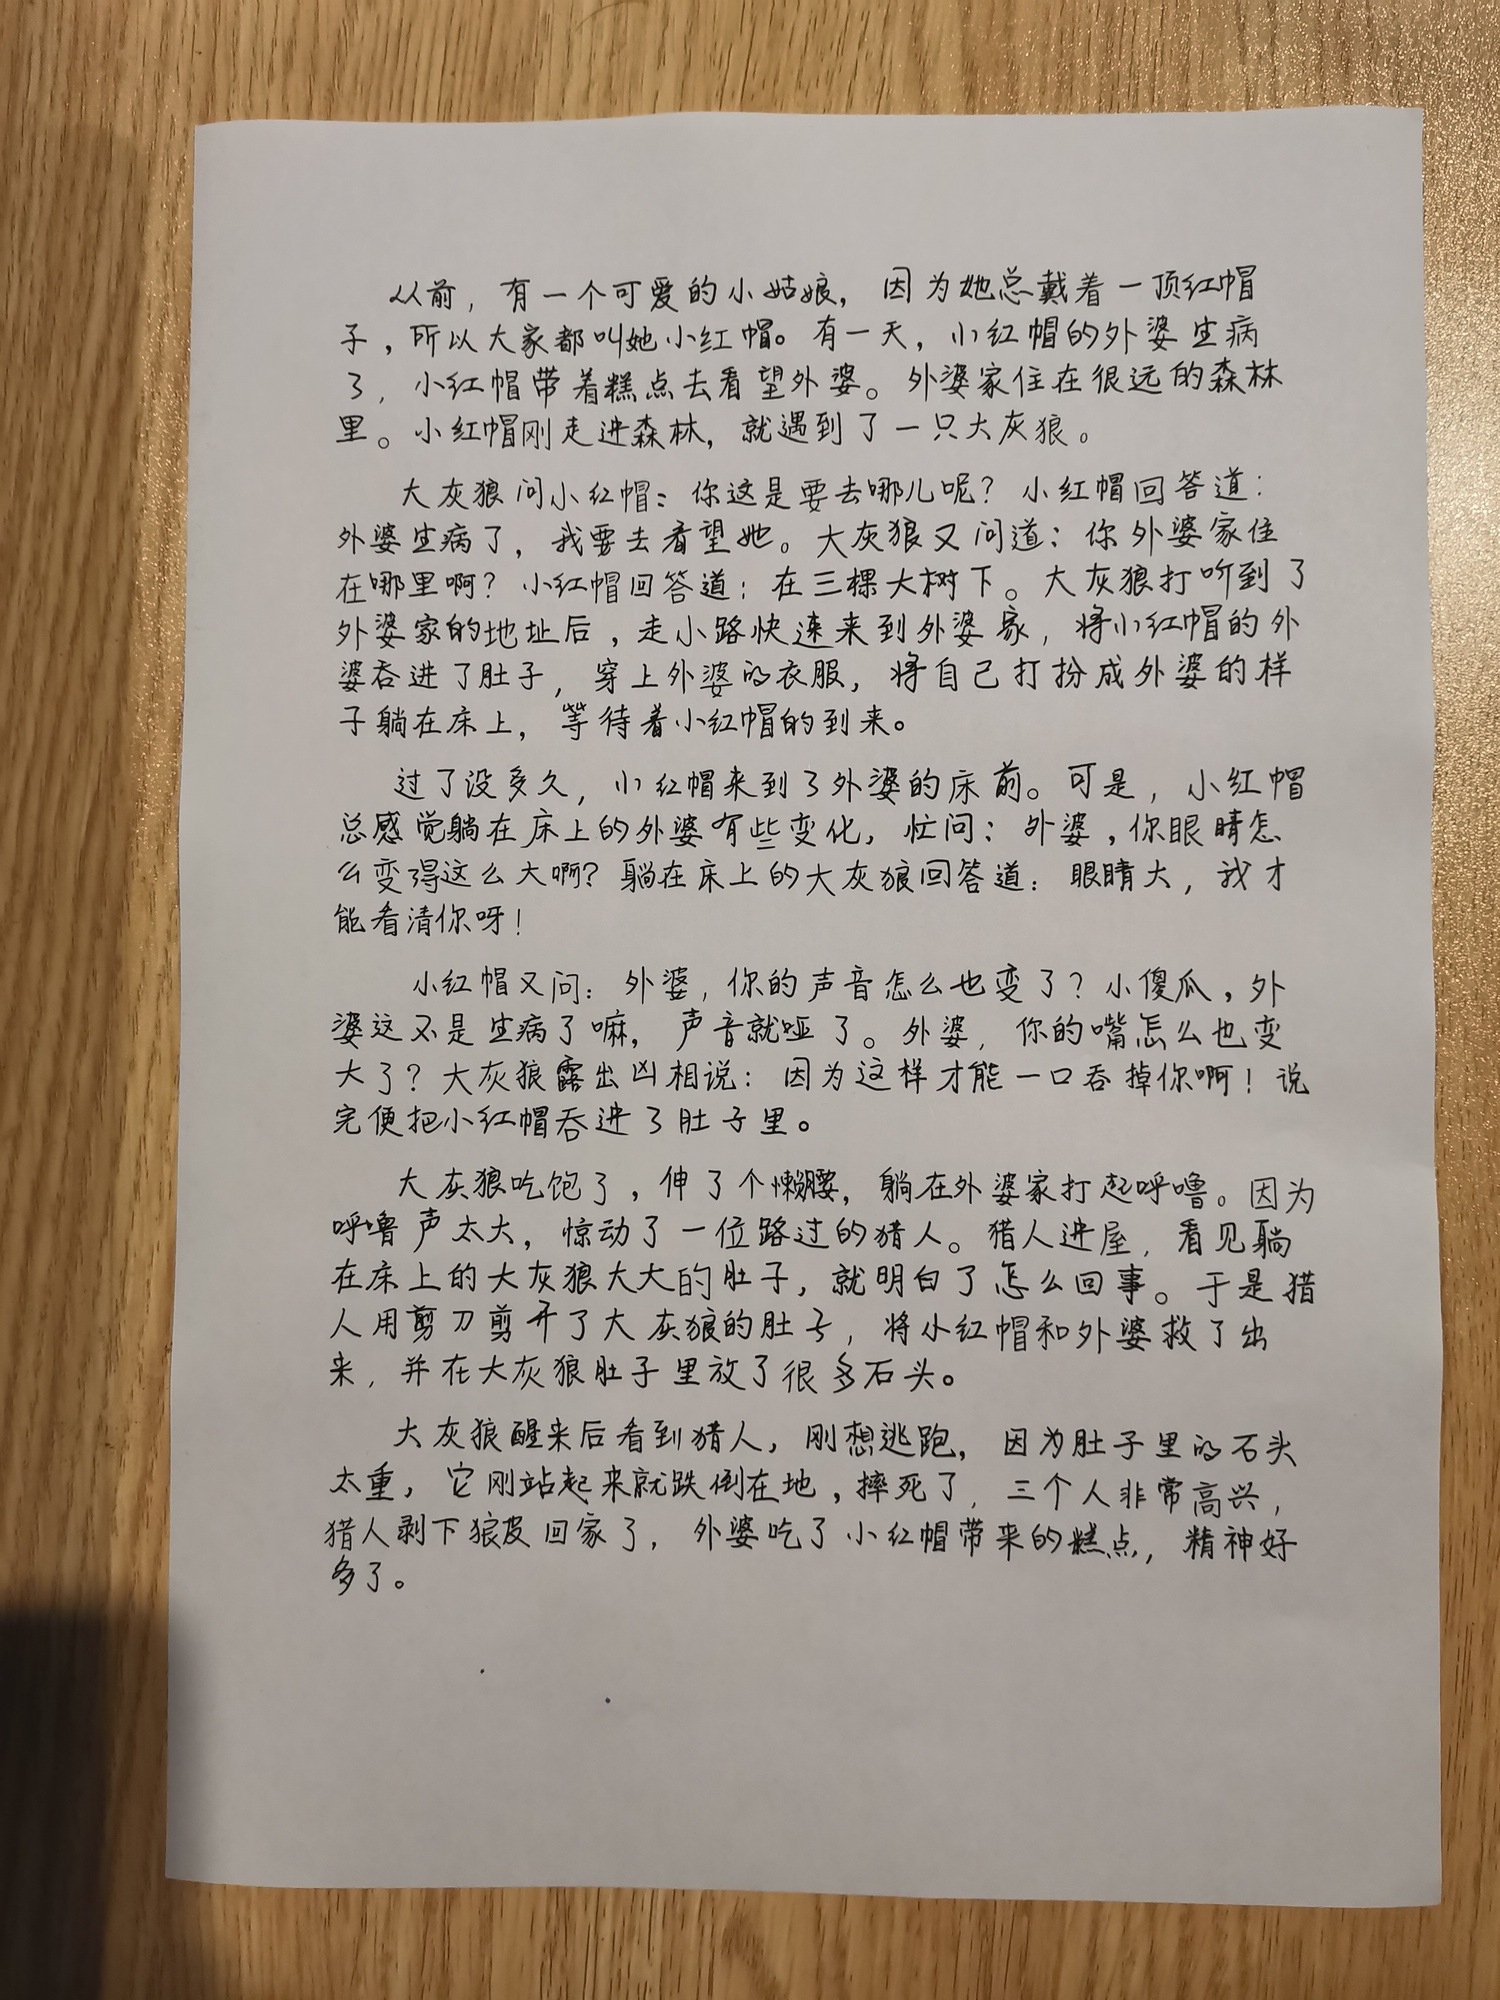 从前，有一个可爱的小姑娘，因为她总戴着一顶红帽
子，所以大家都叫她小红帽。有一天，小红帽的外婆生病
了，小红帽带着糕点去看望外婆。外婆家住在很远的森林
里。小红帽刚走进森林，就遇到了一只大灰狼。
大灰狼问小红帽：你这是要去哪儿呢？小红帽回答道：
外婆生病了，我要去看望她。大灰狼又问道：你外婆家住
在哪里啊？小红帽回答道：在三棵大树下。大灰狼打听到了
外婆家的地址后，走小路快速来到外婆家，将小红帽的外
婆吞进了肚子，穿上外婆的衣服，将自己打扮成外婆的样
子躺在床上，等待着小红帽的到来。
过了没多久，小红帽来到了外婆的床前。可是，小红帽
总感觉躺在床上的外婆有些变化，忙问：外婆，你眼睛怎
么变得这么大啊？躺在床上的大灰狼回答道：眼睛大，我才
能看清你呀！
小红帽又问：外婆，你的声音怎么也变了？小傻瓜，外
婆这不是生病了嘛，声音就哑了。外婆，你的嘴怎么也变
大了？大灰狼露出凶相说：因为这样才能一口吞掉你啊！说
完便把小红帽吞进了肚子里。
大灰狼吃饱了，伸了个懒腰，躺在外婆家打起呼噜。因为
呼噜声太大，惊动了一位路过的猎人。猎人进屋，看见躺
在床上的大灰狼大大的肚子，就明白了怎么回事。于是猎
人用剪刀剪开了大灰狼的肚子，将小红帽和外婆救了出
来，并在大灰狼肚子里放了很多石头。
大灰狼醒来后看到猎人，刚想逃跑，因为肚子里的石头
太重，它刚站起来就跌倒在地，摔死了，三个人非常高兴，
猎人剥下狼皮回家了，外婆吃了小红帽带来的糕点，精神好
多了。